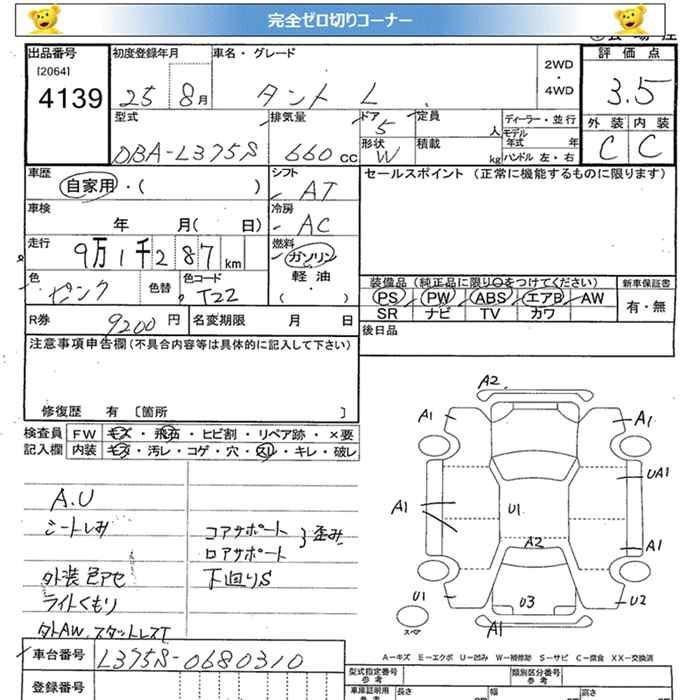 完全ゼロ切りコーナー
出品番号 初度登録年月 車名・グレード 評価点
[2064]
4139 25 8月 タント L 2WD・4WD 3.5
型式 排気量 ドア 定員 ディーラー・並行 外装 内装
DBA-L375S 660cc 5 人 モデル年式 年 C C
形状 W 積載 kg ハンドル 左・右
車歴 シフト セールスポイント(正常に機能するものに限ります)
自家用・( ) AT
車検 冷房
年 月( 日) AC
走行 燃料
9万1千287km ガソリン
色 色替 色コード 軽油 装備品(純正品に限り○をつけてください) 新車保証書
ピンク T22 ( ) PS PW ABS エアB AW 有・無
SR ナビ TV カワ
R券 9200円 名変期限 月 日 後日品
注意事項申告欄(不具合内容等は具体的に記入して下さい)
修復歴 有 〔箇所 〕
検査員 FW キズ・飛石・ヒビ割・リペア跡・×要
記入欄 内装 キズ・汚レ・コゲ・穴・スレ・キレ・破レ
A2
A1 A1
UA1
A1 U1
A1
A2
U1 U3 U2
A1
スペア
A.U
シートしみ コアサポート
ロアサポート }歪み
外装色アセ 下廻りS
ライトくもり
タトAW.スタットレスT
A-キズ E-エクボ U-凹み W-補修跡 S-サビ C-腐食 XX-交換済
車台番号 L375S-0680310
型式指定番号 参考 類別区分番号 参考
登録番号 車庫証明用 参考 長さ cm 幅 cm 高さ cm